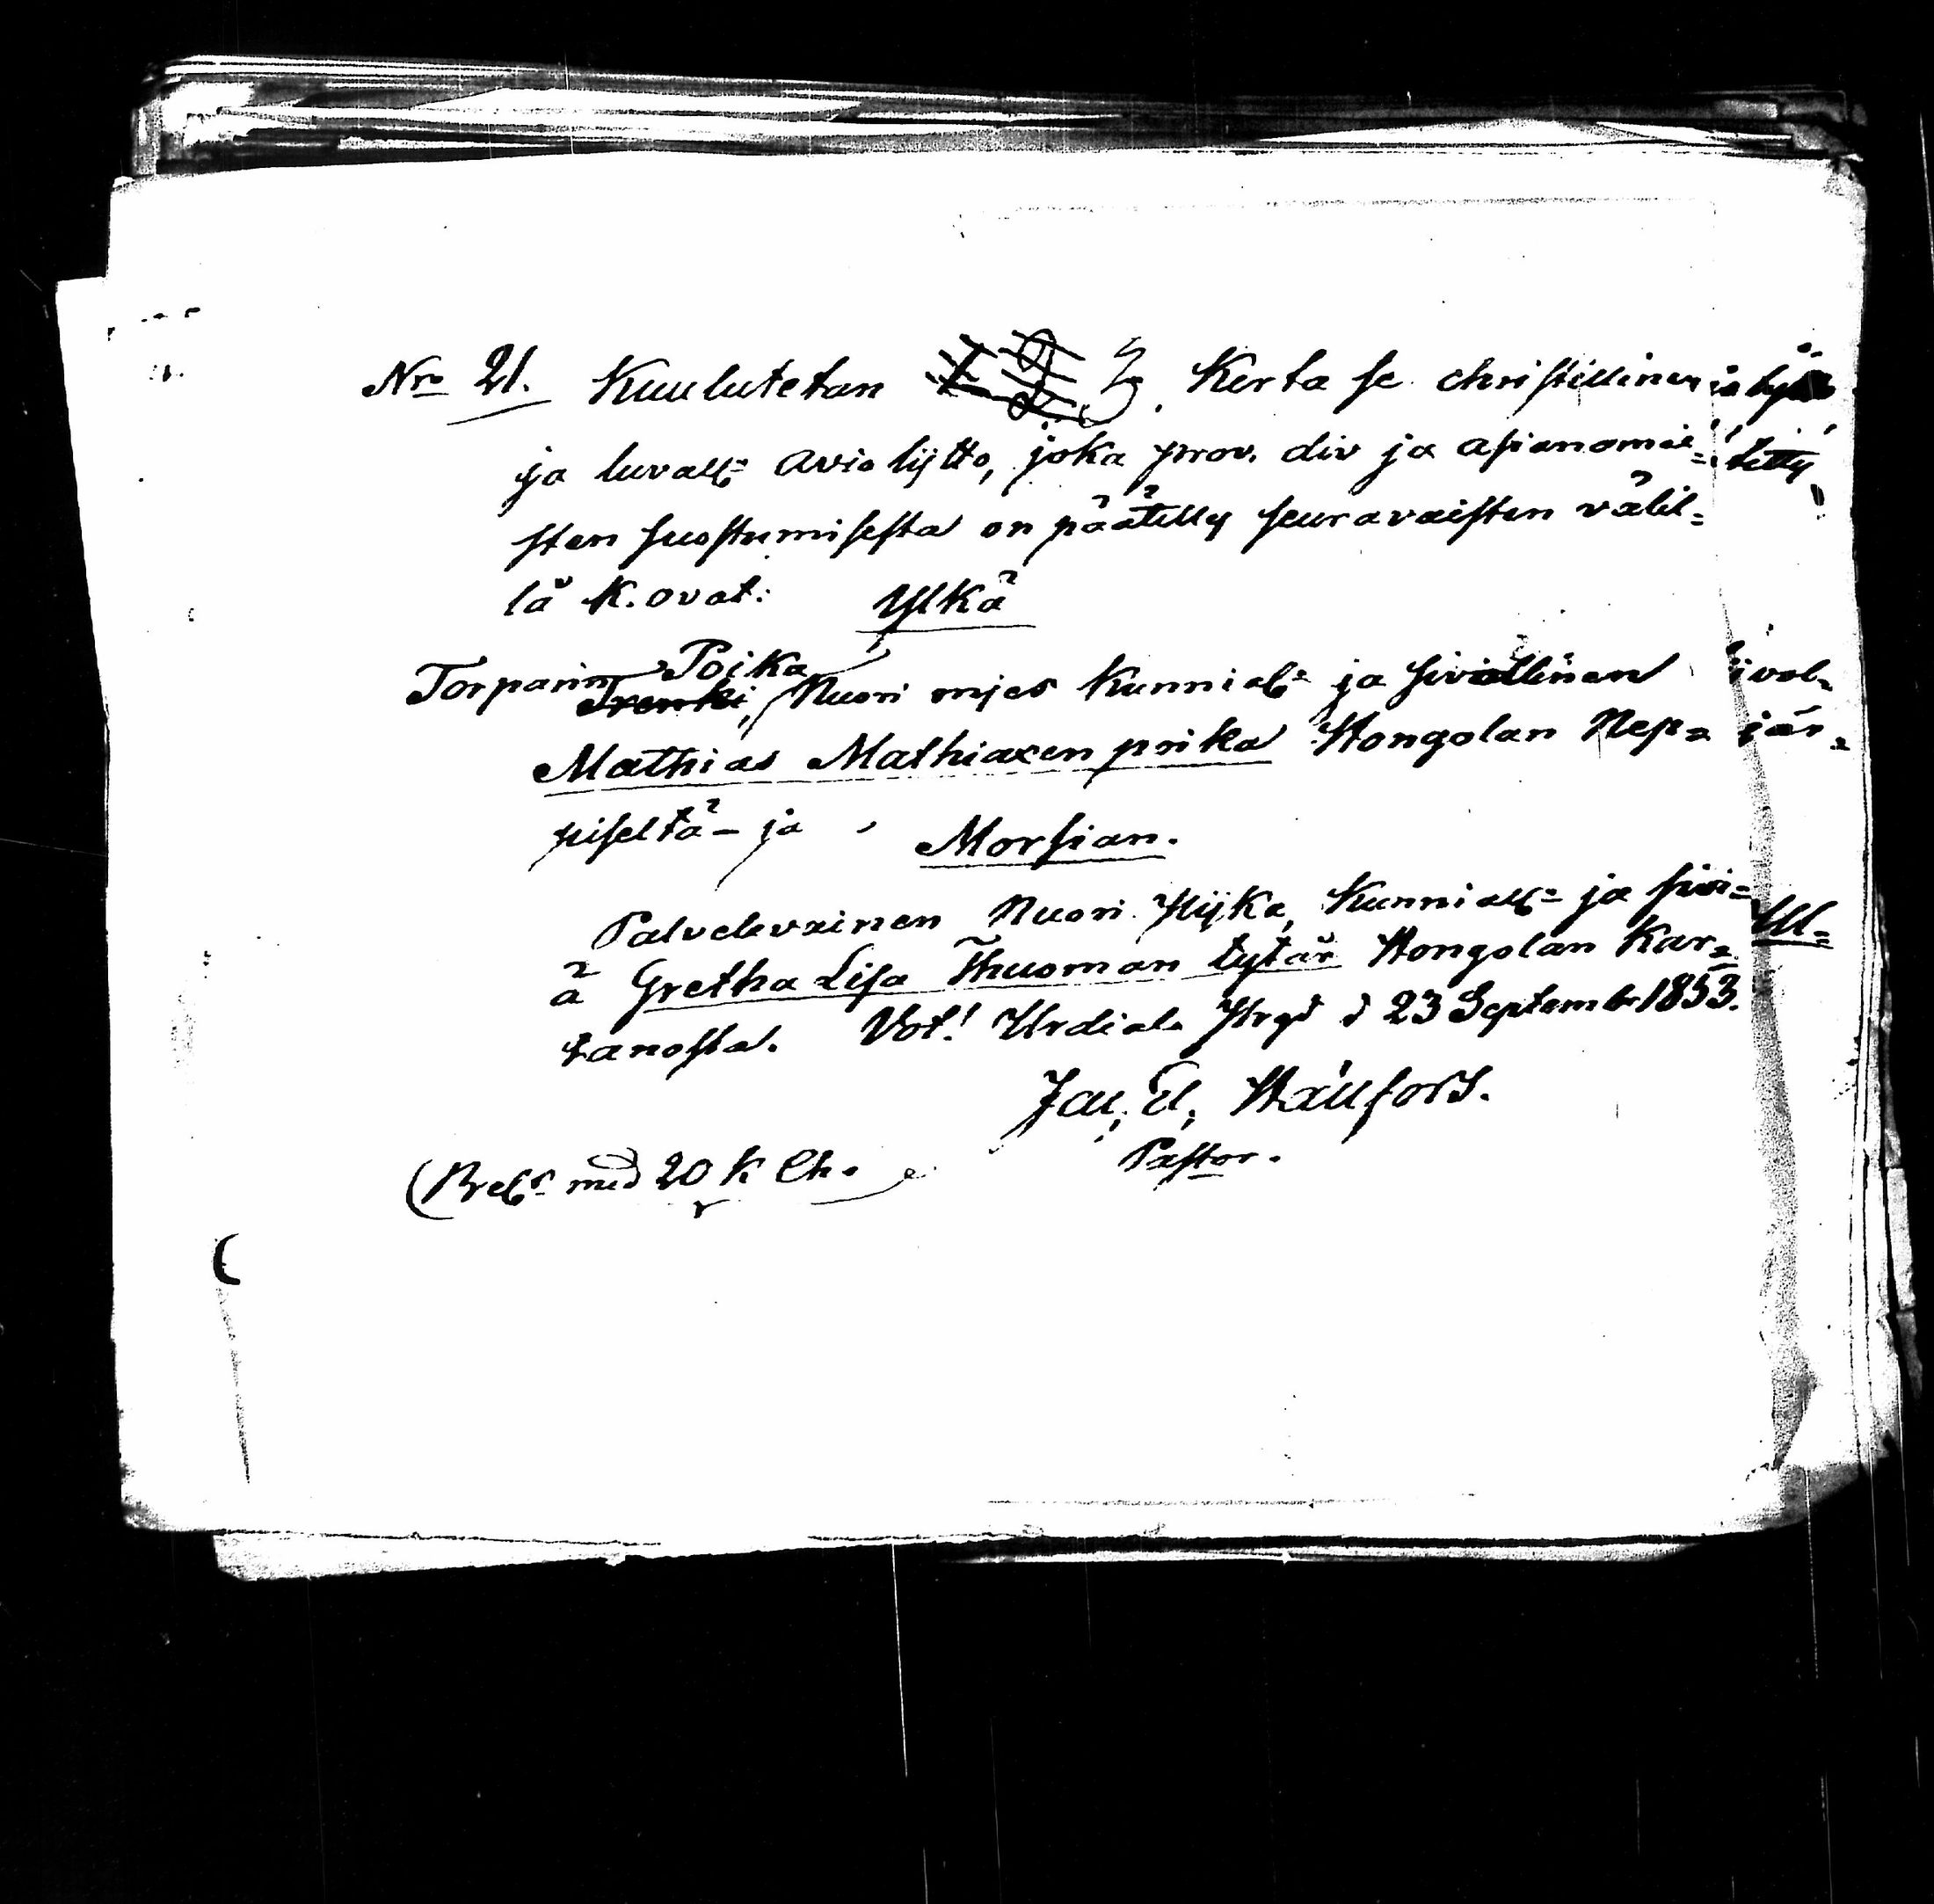 Nro 21. Kuulutetan 3. Kerta se christillinen
ja luvall: avio lijtto, joka prov. div ja asianomai=
sten suostumisesta on päätetty seuravaisten välil=
lä k. ovat: Ylkä
Torparin Poika
Trenki, Nuori mjes kunniall: ja siviallinen
Mathias Mathiaxen poika Hongolan Nep=
piseltä - ja
Morsian.
Palvelevainen Nuori Pijka, kunniall= ja sivi=
ä Gretha Lisa Thuoman tytär Hongolan Kar=
tanosta. Vot! Urdiala Prgd d 23 Septembr 1853.
Hällfors.
Pastor.
med 20 k